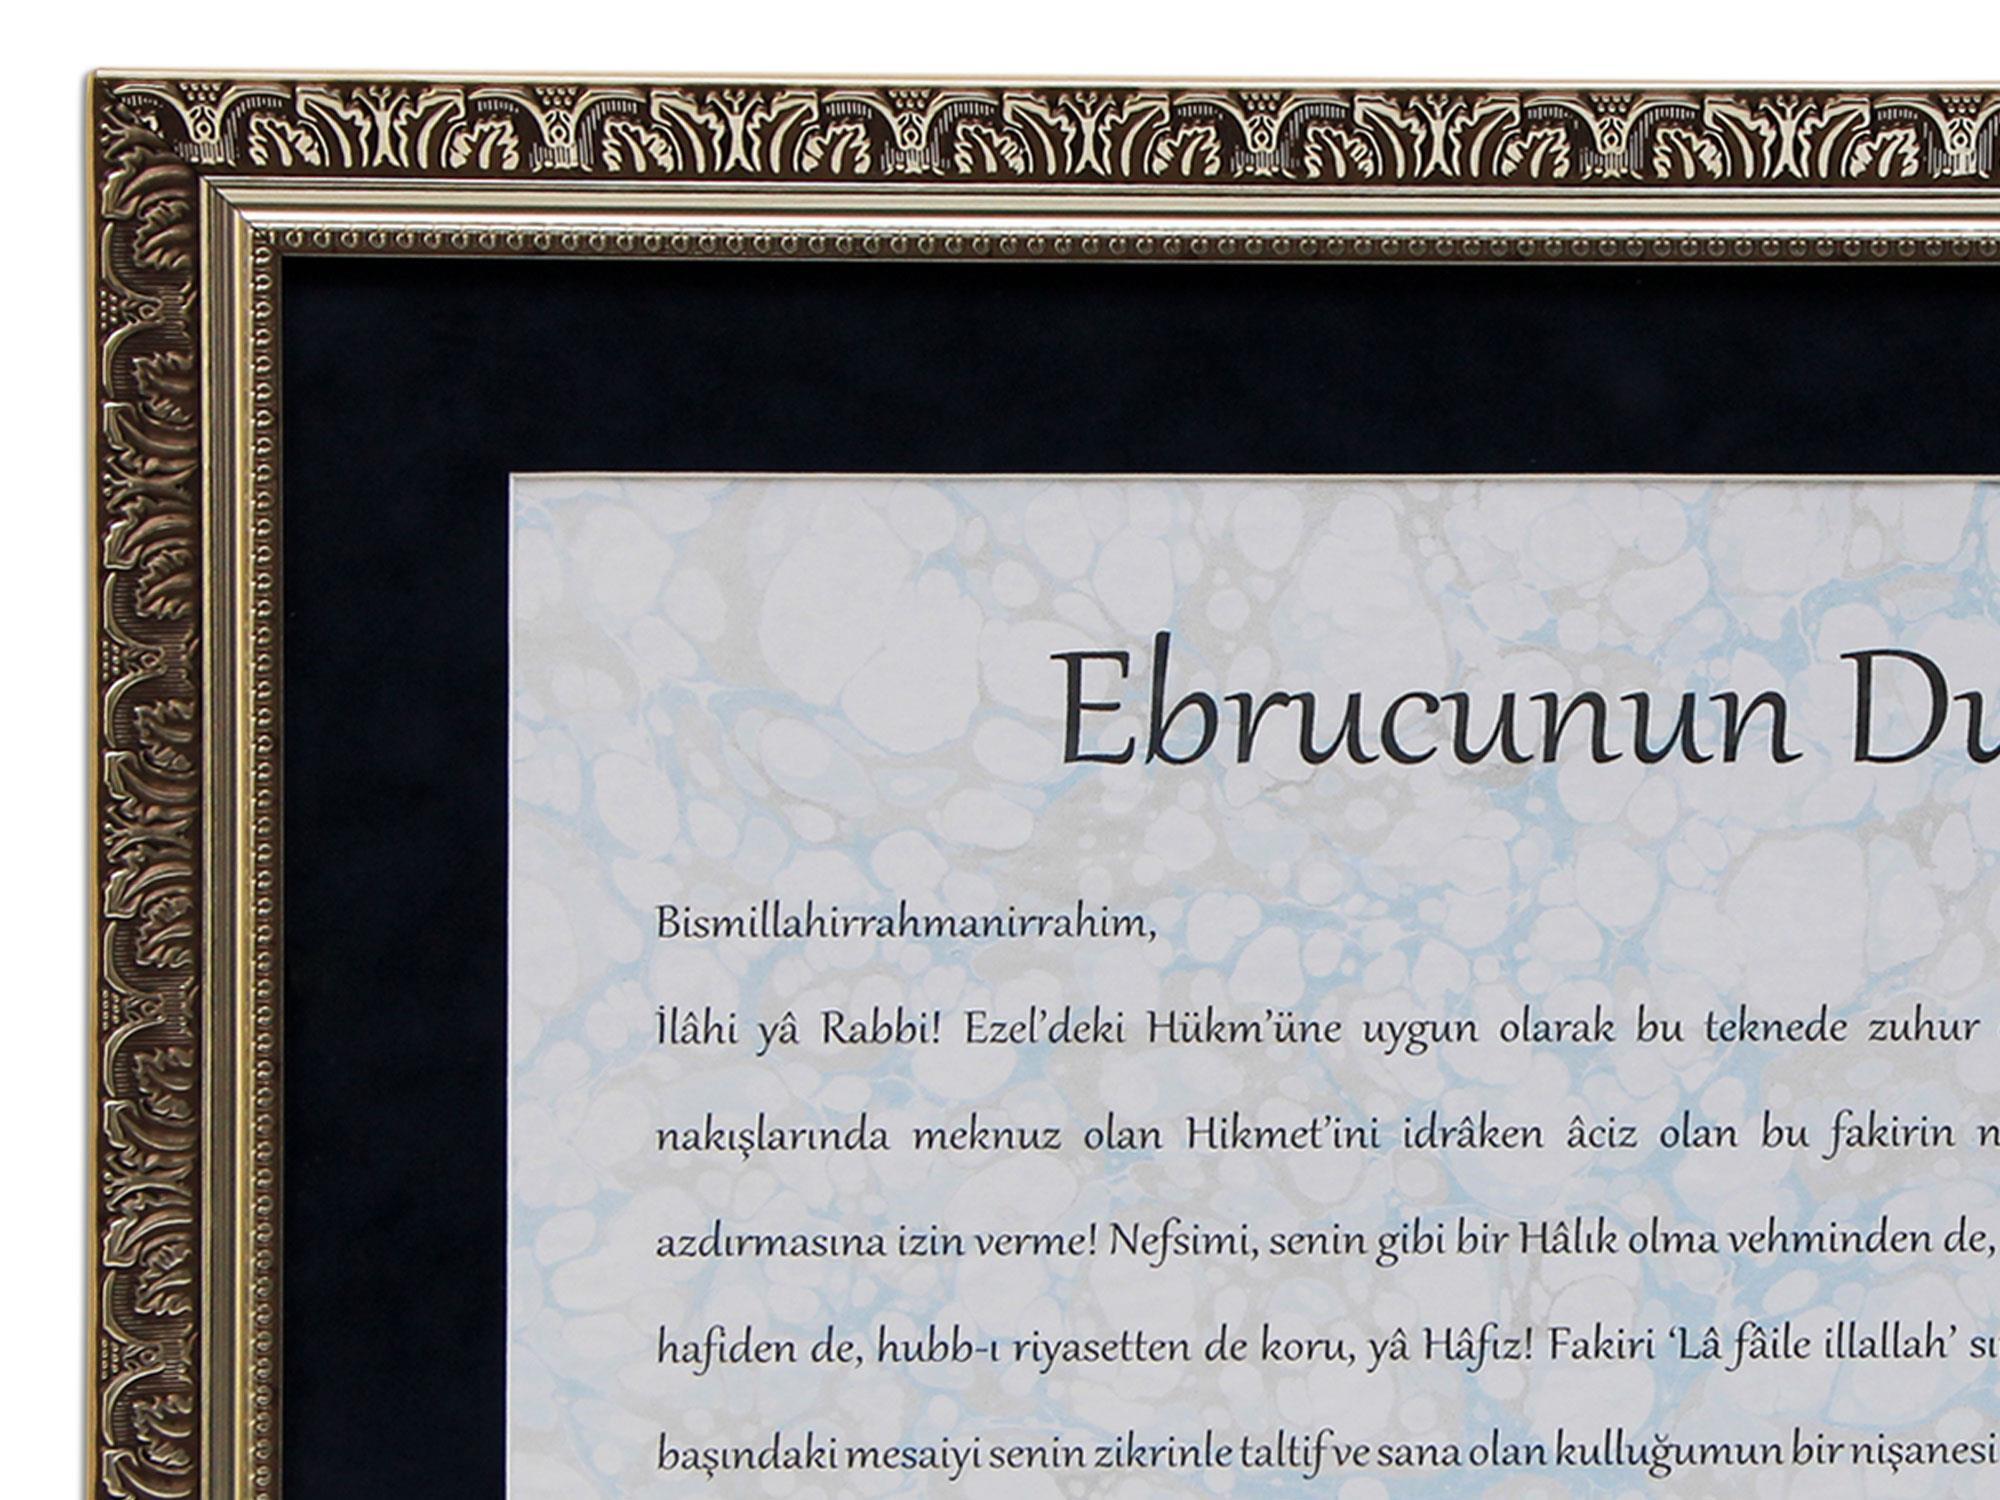 Ebrucunun Du
Bismillahirrahmanirrahim,
İlâhi yâ Rabbi! Ezel’deki Hükm’üne uygun olarak bu teknede zuhur
nakışlarında meknuz olan Hikmet’ini idrâken âciz olan bu fakirin
azdırmasına izin verme! Nefsimi, senin gibi bir Hâlık olma vehminden de,
hafiden de, hubb-ı riyasetten de koru, yâ Hâfız! Fakiri ‘Lâ fâile illallah’
başındaki mesaiyi senin zikrinle taltif ve sana olan kulluğumun bir nişanesi